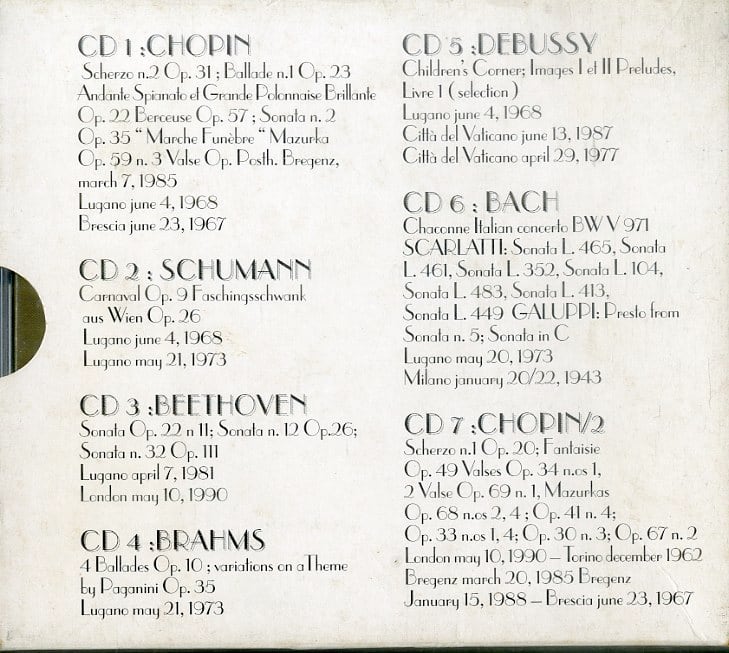 CD 1 :CHOPIN
Scherzo n.2 Op. 31 ; Ballade n.1 Op. 23
Andante Spianato et Grande Polonnaise Brillante
Op. 22 Berceuse Op. 57 ; Sonata n. 2
Op. 35 “ Marche Funèbre “ Mazurka
Op. 59 n. 3 Valse Op. Posth. Bregenz,
march 7, 1985
Lugano june 4, 1968
Brescia june 23, 1967
CD 2 : SCHUMANN
Carnaval Op. 9 Faschingsschwank
aus Wien Op. 26
Lugano june 4, 1968
Lugano may 21, 1973
CD 3 :BEETHOVEN
Sonata Op. 22 n 11; Sonata n. 12 Op.26;
Sonata n. 32 Op. 111
Lugano april 7, 1981
London may 10, 1990
CD 4 :BRAHMS
4 Ballades Op. 10 ; variations on aTheme
by Paganini Op. 35
Lugano may 21, 1973
CD 5 :DEBUSSY
Children's Corner; Images I et II Preludes,
Livre 1 ( selection )
Lugano june 4, 1968
Città del Vaticano june 13, 1987
Città del Vaticano april 29, 1977
CD 6 : BACH
Chaconne Italian concerto BWV 971
SCARLATTI: Sonata L. 465, Sonata
L. 461, Sonata L. 352, Sonata L. 104,
Sonata L. 483, Sonata L. 413,
Sonata L. 449 GALUPPI: Presto from
Sonata n. 5; Sonata in C
Lugano may 20, 1973
Milano january 20/22, 1943
CD 7 :CHOPIN/2
Scherzo n.1 Op. 20; Fantaisie
Op. 49 Valses Op. 34 n.os 1,
2 Valse Op. 69 n. 1, Mazurkas
Op. 68 n.os 2, 4 ; Op. 41 n. 4;
Op. 33 n.os 1, 4; Op. 30 n. 3; Op. 67 n. 2
London may 10, 1990 – Torino december 1962
Bregenz march 20, 1985 Bregenz
January 15, 1988 – Brescia june 23, 1967